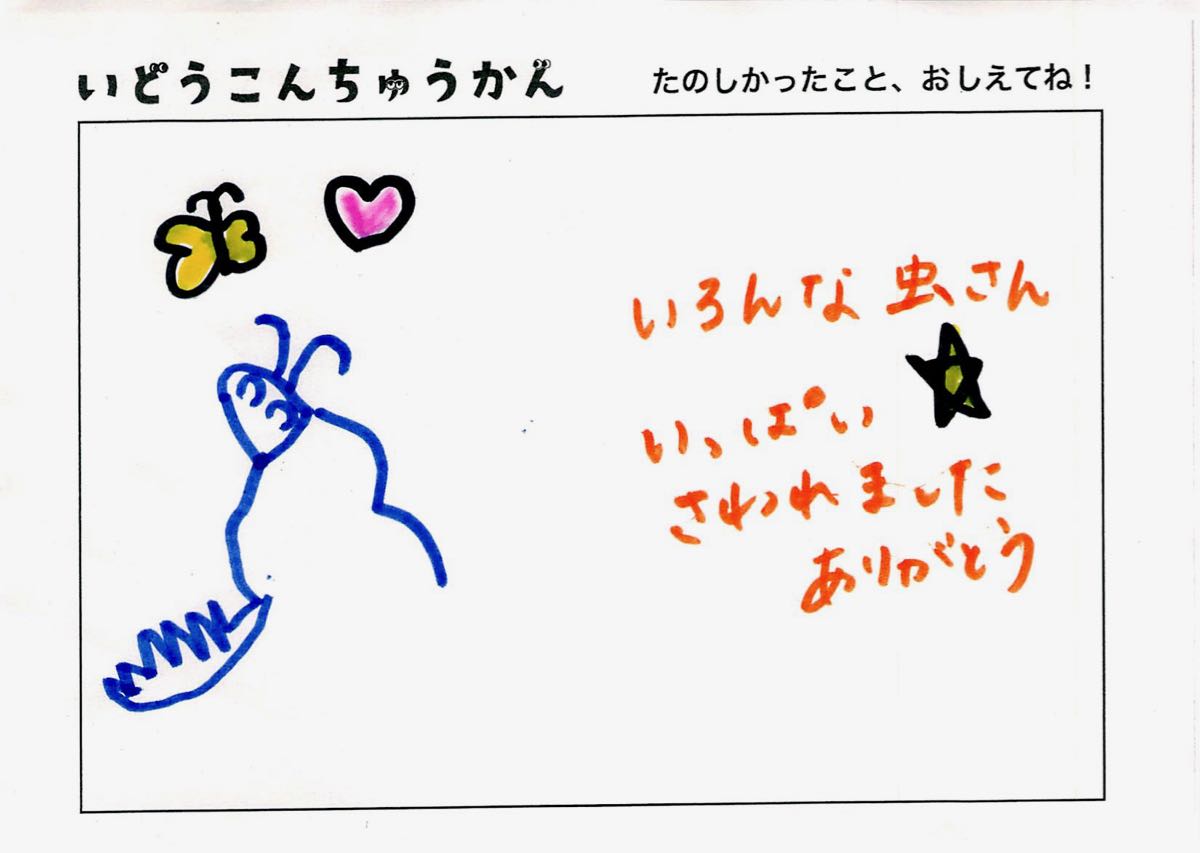 いどうこんちゅうかん
たのしかったこと、おしえてね!
いろんな虫さん
いっぱい
さわれました
ありがとう